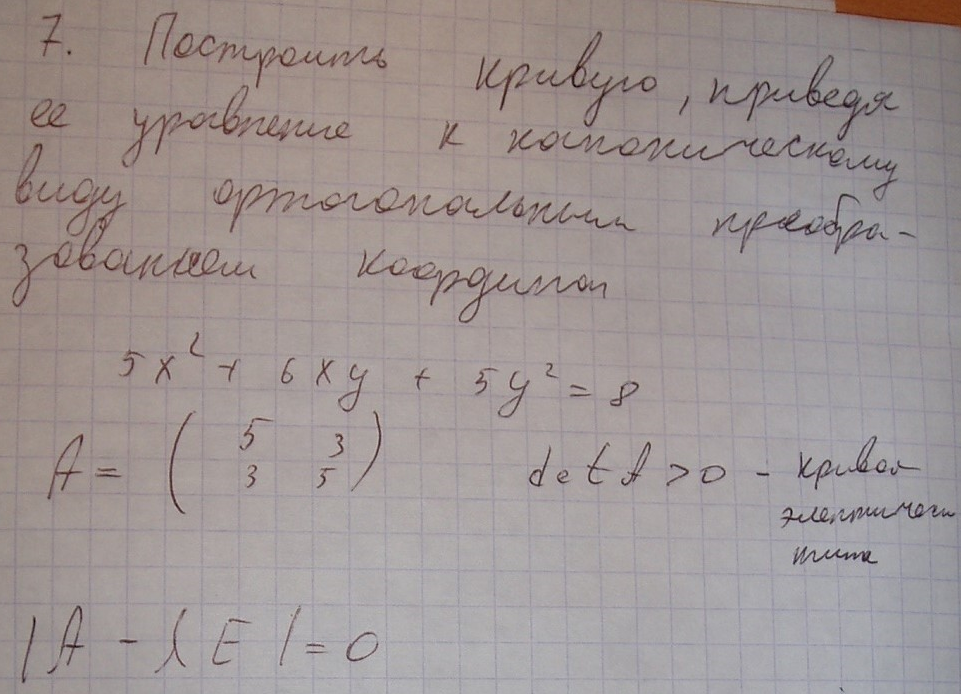 7. Построить кривую, приведя
ее уравнение к каноническому
виду ортогональным преобра-
зованием координат
5x² + 6xy + 5y² = 8
A = ( 5 3
3 5 ) det A > 0 - кривая
элептическ
типа
|A - λE| = 0